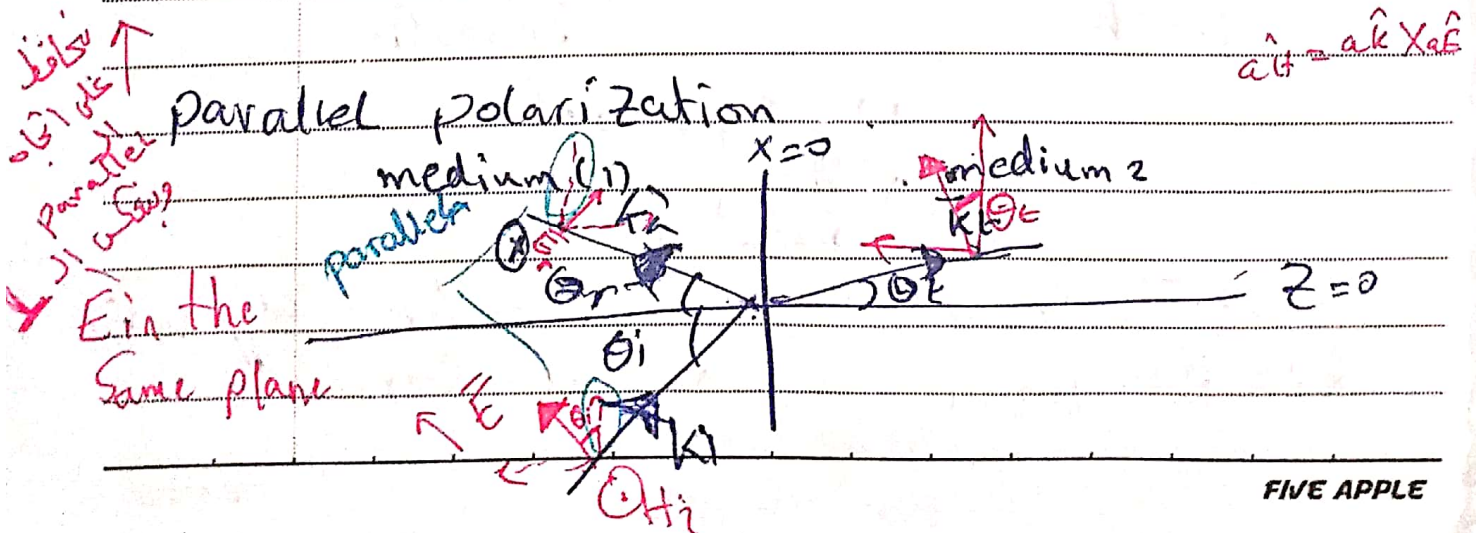 نحافظ
على اتجاه
ال parallel
ونعكس ال
âH = âk X âE
parallel polarization
X=0
medium (1)
medium 2
parallel
θt
θr
θt
Z=0
θi
E in the
Same plane
E
θi
Ki
Hi
FIVE APPLE